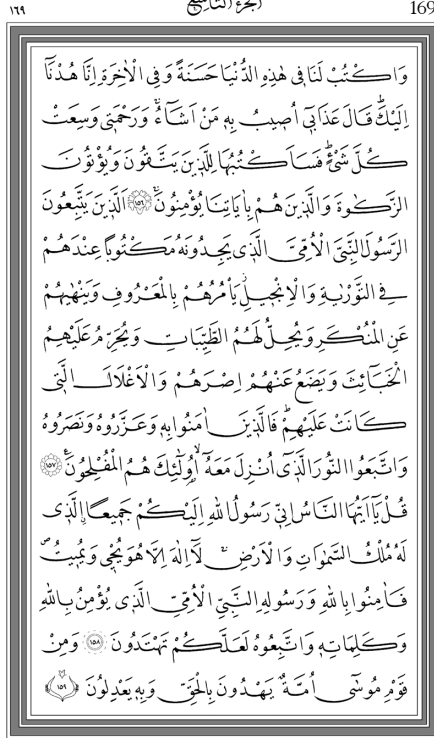 ١٦٩ الجزء التاسع 169
وَاكْتُبْ لَنَا فِى هٰذِهِ الدُّنْيَا حَسَنَةً وَفِى الْاٰخِرَةِ اِنَّا هُدْنَٓا
اِلَيْكَۜ قَالَ عَذَابٖٓى اُصٖيبُ بِهٖ مَنْ اَشَٓاءُۚ وَرَحْمَتٖى وَسِعَتْ
كُلَّ شَىْءٍۜ فَسَاَكْتُبُهَا لِلَّذٖينَ يَتَّقُونَ وَيُؤْتُونَ
الزَّكٰوةَ وَالَّذٖينَ هُمْ بِاٰيَاتِنَا يُؤْمِنُونَۚ ﴿١٥٦﴾ اَلَّذٖينَ يَتَّبِعُونَ
الرَّسُولَ النَّبِىَّ الْاُمِّىَّ الَّذٖى يَجِدُونَهُ مَكْتُوبًا عِنْدَهُمْ
فِى التَّوْرٰيةِ وَالْاِنْجٖيلِؗ يَأْمُرُهُمْ بِالْمَعْرُوفِ وَيَنْهٰيهُمْ
عَنِ الْمُنْكَرِ وَيُحِلُّ لَهُمُ الطَّيِّبَاتِ وَيُحَرِّمُ عَلَيْهِمُ
الْخَبَٓائِثَ وَيَضَعُ عَنْهُمْ اِصْرَهُمْ وَالْاَغْلَالَ الَّتٖى
كَانَتْ عَلَيْهِمْۜ فَالَّذٖينَ اٰمَنُوا بِهٖ وَعَزَّرُوهُ وَنَصَرُوهُ
وَاتَّبَعُوا النُّورَ الَّذٖٓى اُنْزِلَ مَعَهُٓۙ اُو۬لٰٓئِكَ هُمُ الْمُفْلِحُونَۚ ﴿١٥٧﴾
قُلْ يَٓا اَيُّهَا النَّاسُ اِنّٖى رَسُولُ اللّٰهِ اِلَيْكُمْ جَمٖيعًاۨ الَّذٖى
لَهُ مُلْكُ السَّمٰوَاتِ وَالْاَرْضِۚ لَٓا اِلٰهَ اِلَّا هُوَ يُحْيٖى وَيُمٖيتُࣕ
فَاٰمِنُوا بِاللّٰهِ وَرَسُولِهِ النَّبِىِّ الْاُمِّىِّ الَّذٖى يُؤْمِنُ بِاللّٰهِ
وَكَلِمَاتِهٖ وَاتَّبِعُوهُ لَعَلَّكُمْ تَهْتَدُونَ ﴿١٥٨﴾ وَمِنْ
قَوْمِ مُوسٰٓى اُمَّةٌ يَهْدُونَ بِالْحَقِّ وَبِهٖ يَعْدِلُونَ ﴿١٥٩﴾